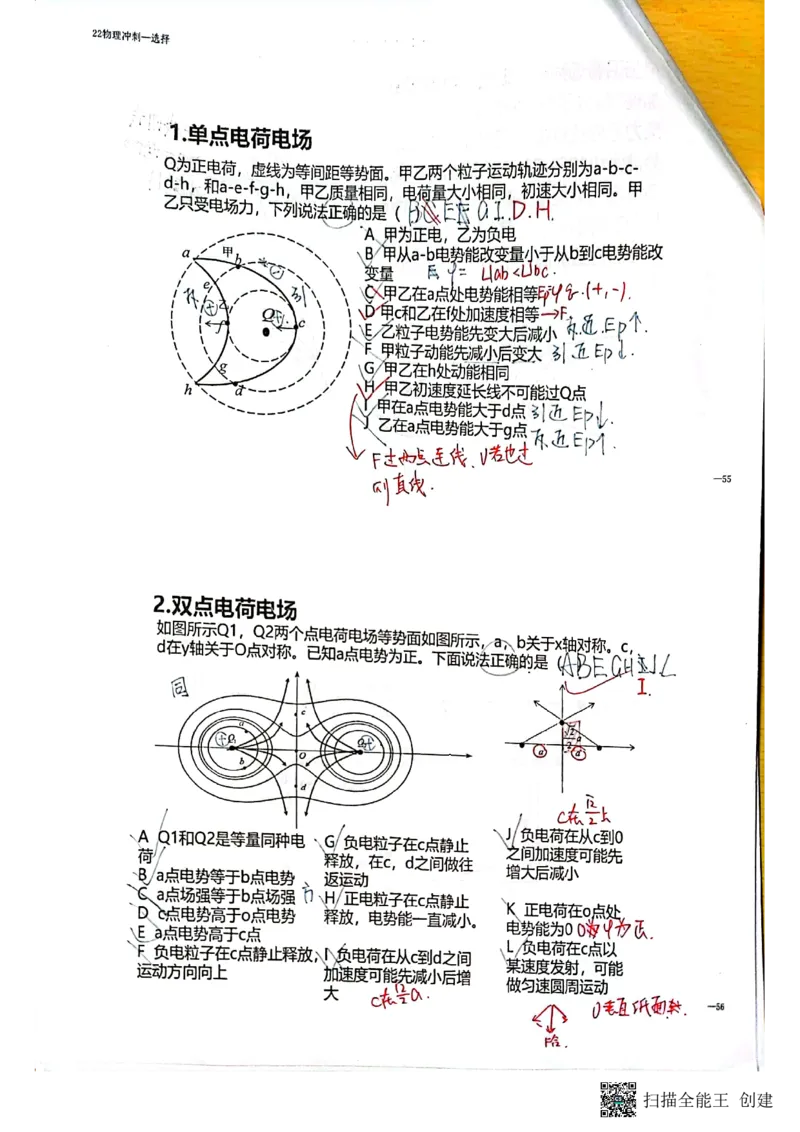 22物理冲刺—选择
1.单点电荷电场
Q为正电荷，虚线为等间距等势面。甲乙两个粒子运动轨迹分别为a-b-c-
d-h，和a-e-f-g-h，甲乙质量相同，电荷量大小相同，初速大小相同。甲
乙只受电场力，下列说法正确的是（
D.H.
a
甲
b
e
乙
f
Q
c
g
h
d
斥
引
A 甲为正电，乙为负电
B 甲从a-b电势能改变量小于从b到c电势能改
变量 Uab<Ubc.
C 甲乙在a点处电势能相等 Ep=φq.(+,-).
D 甲c和乙在f处加速度相等→F
E 乙粒子电势能先变大后减小 斥近Ep↑.
F 甲粒子动能先减小后变大 引近Ep↓.
G 甲乙在h处动能相同
H 甲乙初速度延长线不可能过Q点
I 甲在a点电势能大于d点 引近Ep↓.
J 乙在a点电势能大于g点 斥近Ep↑.
F过两点连线.V若也过
则直线.
—55
2.双点电荷电场
如图所示Q1，Q2两个点电荷电场等势面如图所示，a，b关于x轴对称。c，
d在y轴关于O点对称。已知a点电势为正。下面说法正确的是（ABEGHIJL
I.
同
a
b
c
O
d
c在√2/2上
A Q1和Q2是等量同种电
荷
B a点电势等于b点电势
C a点场强等于b点场强 方
D c点电势高于o点电势
E a点电势高于c点
F 负电粒子在c点静止释放，
运动方向向上
G 负电粒子在c点静止
释放，在c，d之间做往
返运动
H 正电粒子在c点静止
释放，电势能一直减小。
I 负电荷在从c到d之间
加速度可能先减小后增
大 c在√2/2a.
J 负电荷在从c到0
之间加速度可能先
增大后减小
K 正电荷在o点处
电势能为0 φ为正.
L 负电荷在c点以
某速度发射，可能
做匀速圆周运动
V垂直纸面
F合.
—56
扫描全能王 创建